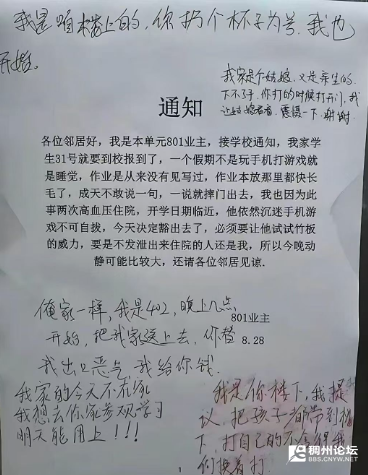 我是咱楼上的，你扔个杯子为号，我也
开始。
我家是个姑娘，又是亲生的
下不了手，你打的时候打开门，我
让姑娘看看，震慑一下，谢谢
通知
各位邻居好，我是本单元801业主，接学校通知，我家学
生31号就要到校报到了，一个假期不是玩手机打游戏就
是睡觉，作业是从来没有见写过，作业本放那里都快长
毛了，成天不敢说一句，一说就摔门出去，我也因为此
事两次高血压住院，开学日期临近，他依然沉迷手机游
戏不可自拔，今天决定豁出去了，必须要让他试试竹板
的威力，要是不发泄出来住院的人还是我，所以今晚动
静可能比较大，还请各位邻居见谅.
801业主
8.28
俺家一样，我是402，晚上几点
开始，把我家送上去，你替
我出口恶气，我给你钱
我家的今天不在家
我想去你家参观学习
明天能用上！！！
我是你楼下，我提
议，把孩子都带到楼
下，打自己的不舍得我
们换着打
稠州论坛
BBS.CNYW.NET